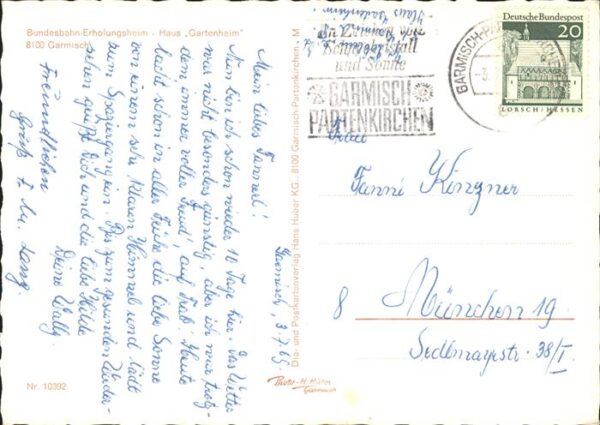 Bundesbahn-Erholungsheim - Haus „Gartenheim"
8100 Garmisch
Garmisch, 3.7.69.
Mein liebes Fannerl!
Nun bin ich schon wieder 10 Tage hier. Das Wetter
war nicht besonders günstig, aber ich war trotz-
dem immer voller Freud' auf Trab. Heute
lacht schon in aller Frühe die liebe Sonne
von einem sehr klaren Himmel und lädt
zum Spaziergang ein. Bis zum gesunden Wieder-
sehen grüßt Dich und die liebe Hilde
Deine Wally.
Freundlichen
Gruß
Lang.
Nr. 10392
Dia- und Postkartenverlag Hans Huber KG · 8100 Garmisch-Partenkirchen · M
Photo-H. Huber
Garmisch
und Sonne
GARMISCH
PARTENKIRCHEN
GARMISCH-PA
Deutsche Bundespost
20
LORSCH/HESSEN
Frau
Fanni Kinzner
8 München 19
Sedlmayrstr. 38/I.